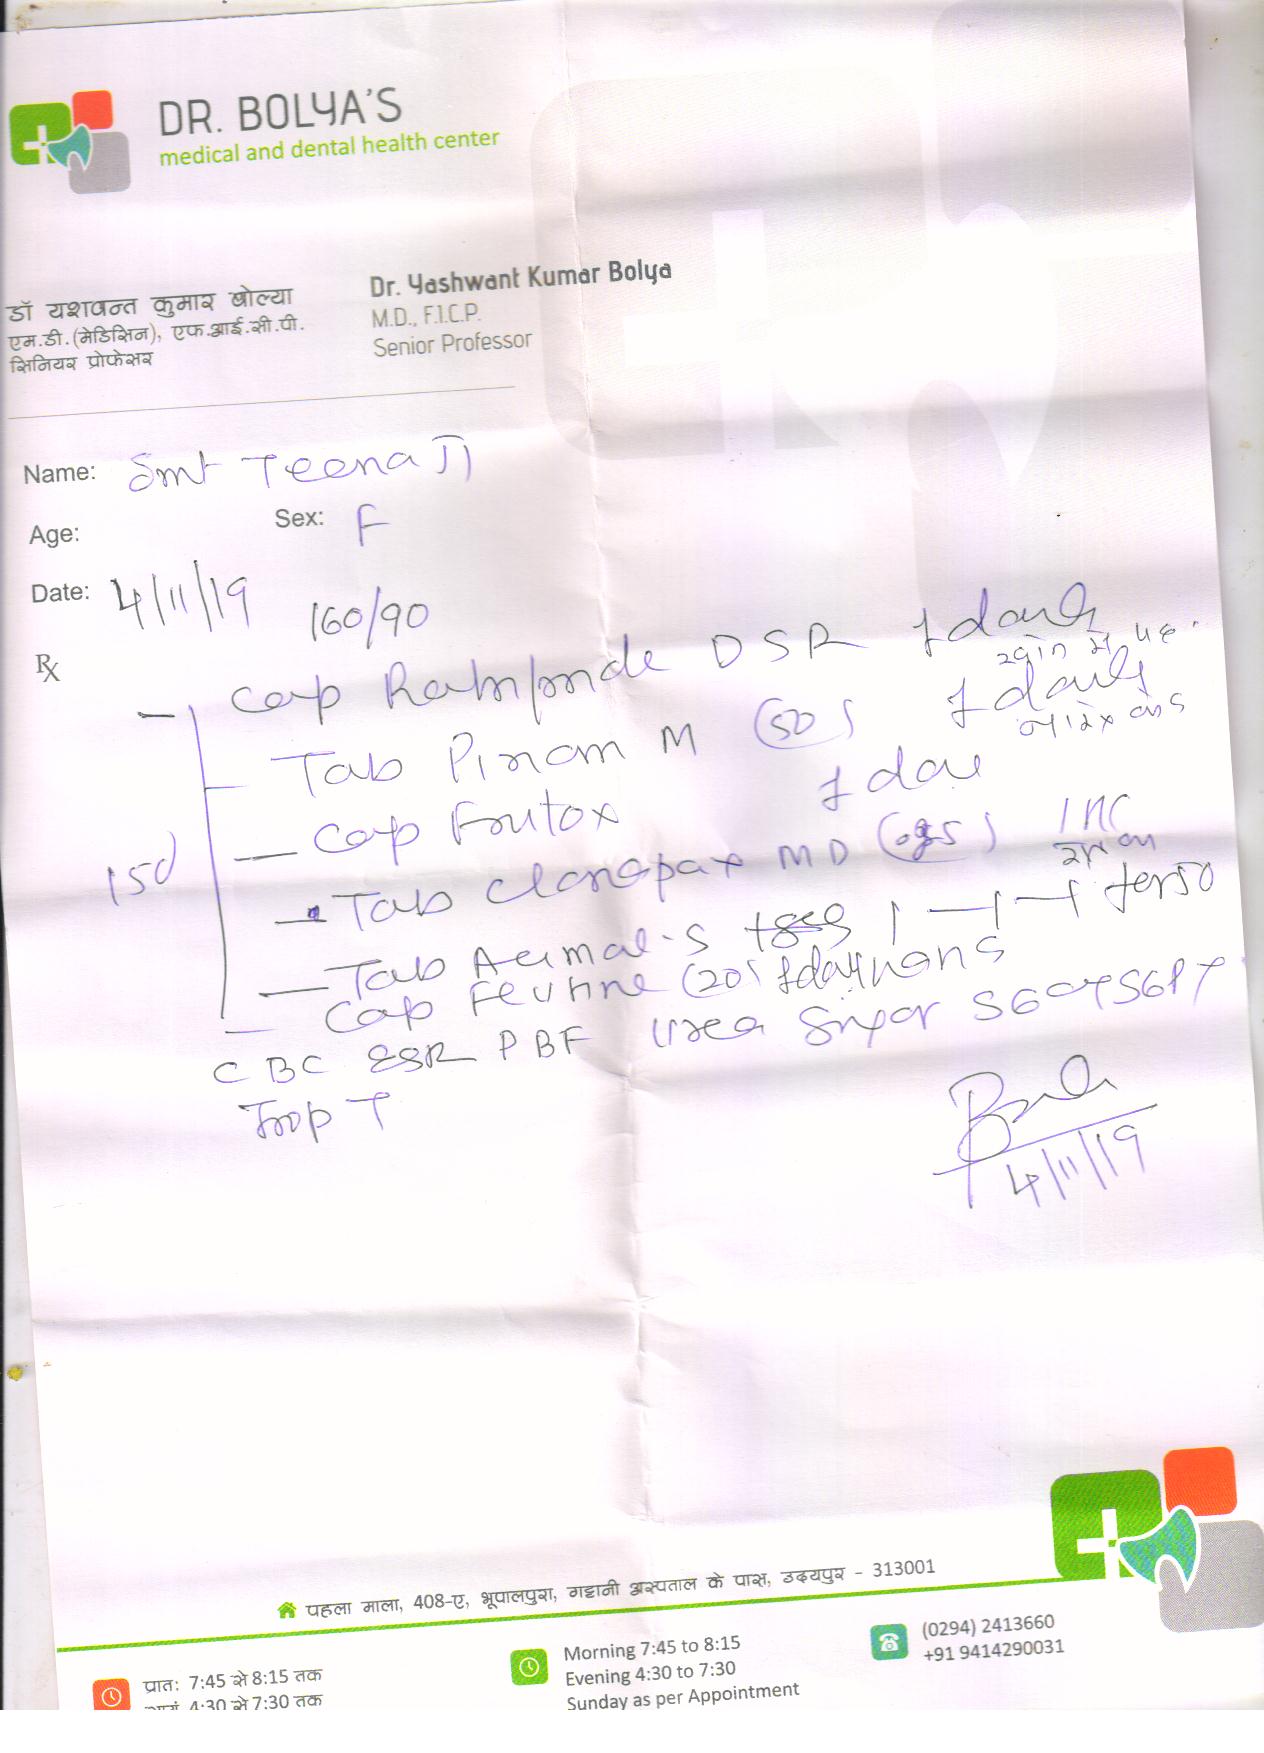 DR. BOLYA'S
medical and dental health center
डॉ यशवन्त कुमार बोल्या
एम.डी.(मेडिसिन), एफ.आई.सी.पी.
सिनियर प्रोफेसर
Dr. Yashwant Kumar Bolya
M.D., F.I.C.P.
Senior Professor
Name: Smt Teena Ji
Age: Sex: F
Date: 4/11/19 160/90
Rx
Cap DSR 1 daily
Tab Pinom M (50) 1 daily
Cap Frutox
15d
Tab Clonopax MD
Tab Acimol-S 1
Cap (20)
CBC ESR PBF Urea Sugar SGOT SGPT
Trop T
4/11/19
पहला माला, 408-ए, भूपालपुरा, गट्टानी अस्पताल के पास, उदयपुर - 313001
प्रातः 7:45 से 8:15 तक
4:30 से 7:30 तक
Morning 7:45 to 8:15
Evening 4:30 to 7:30
Sunday as per Appointment
(0294) 2413660
+91 9414290031